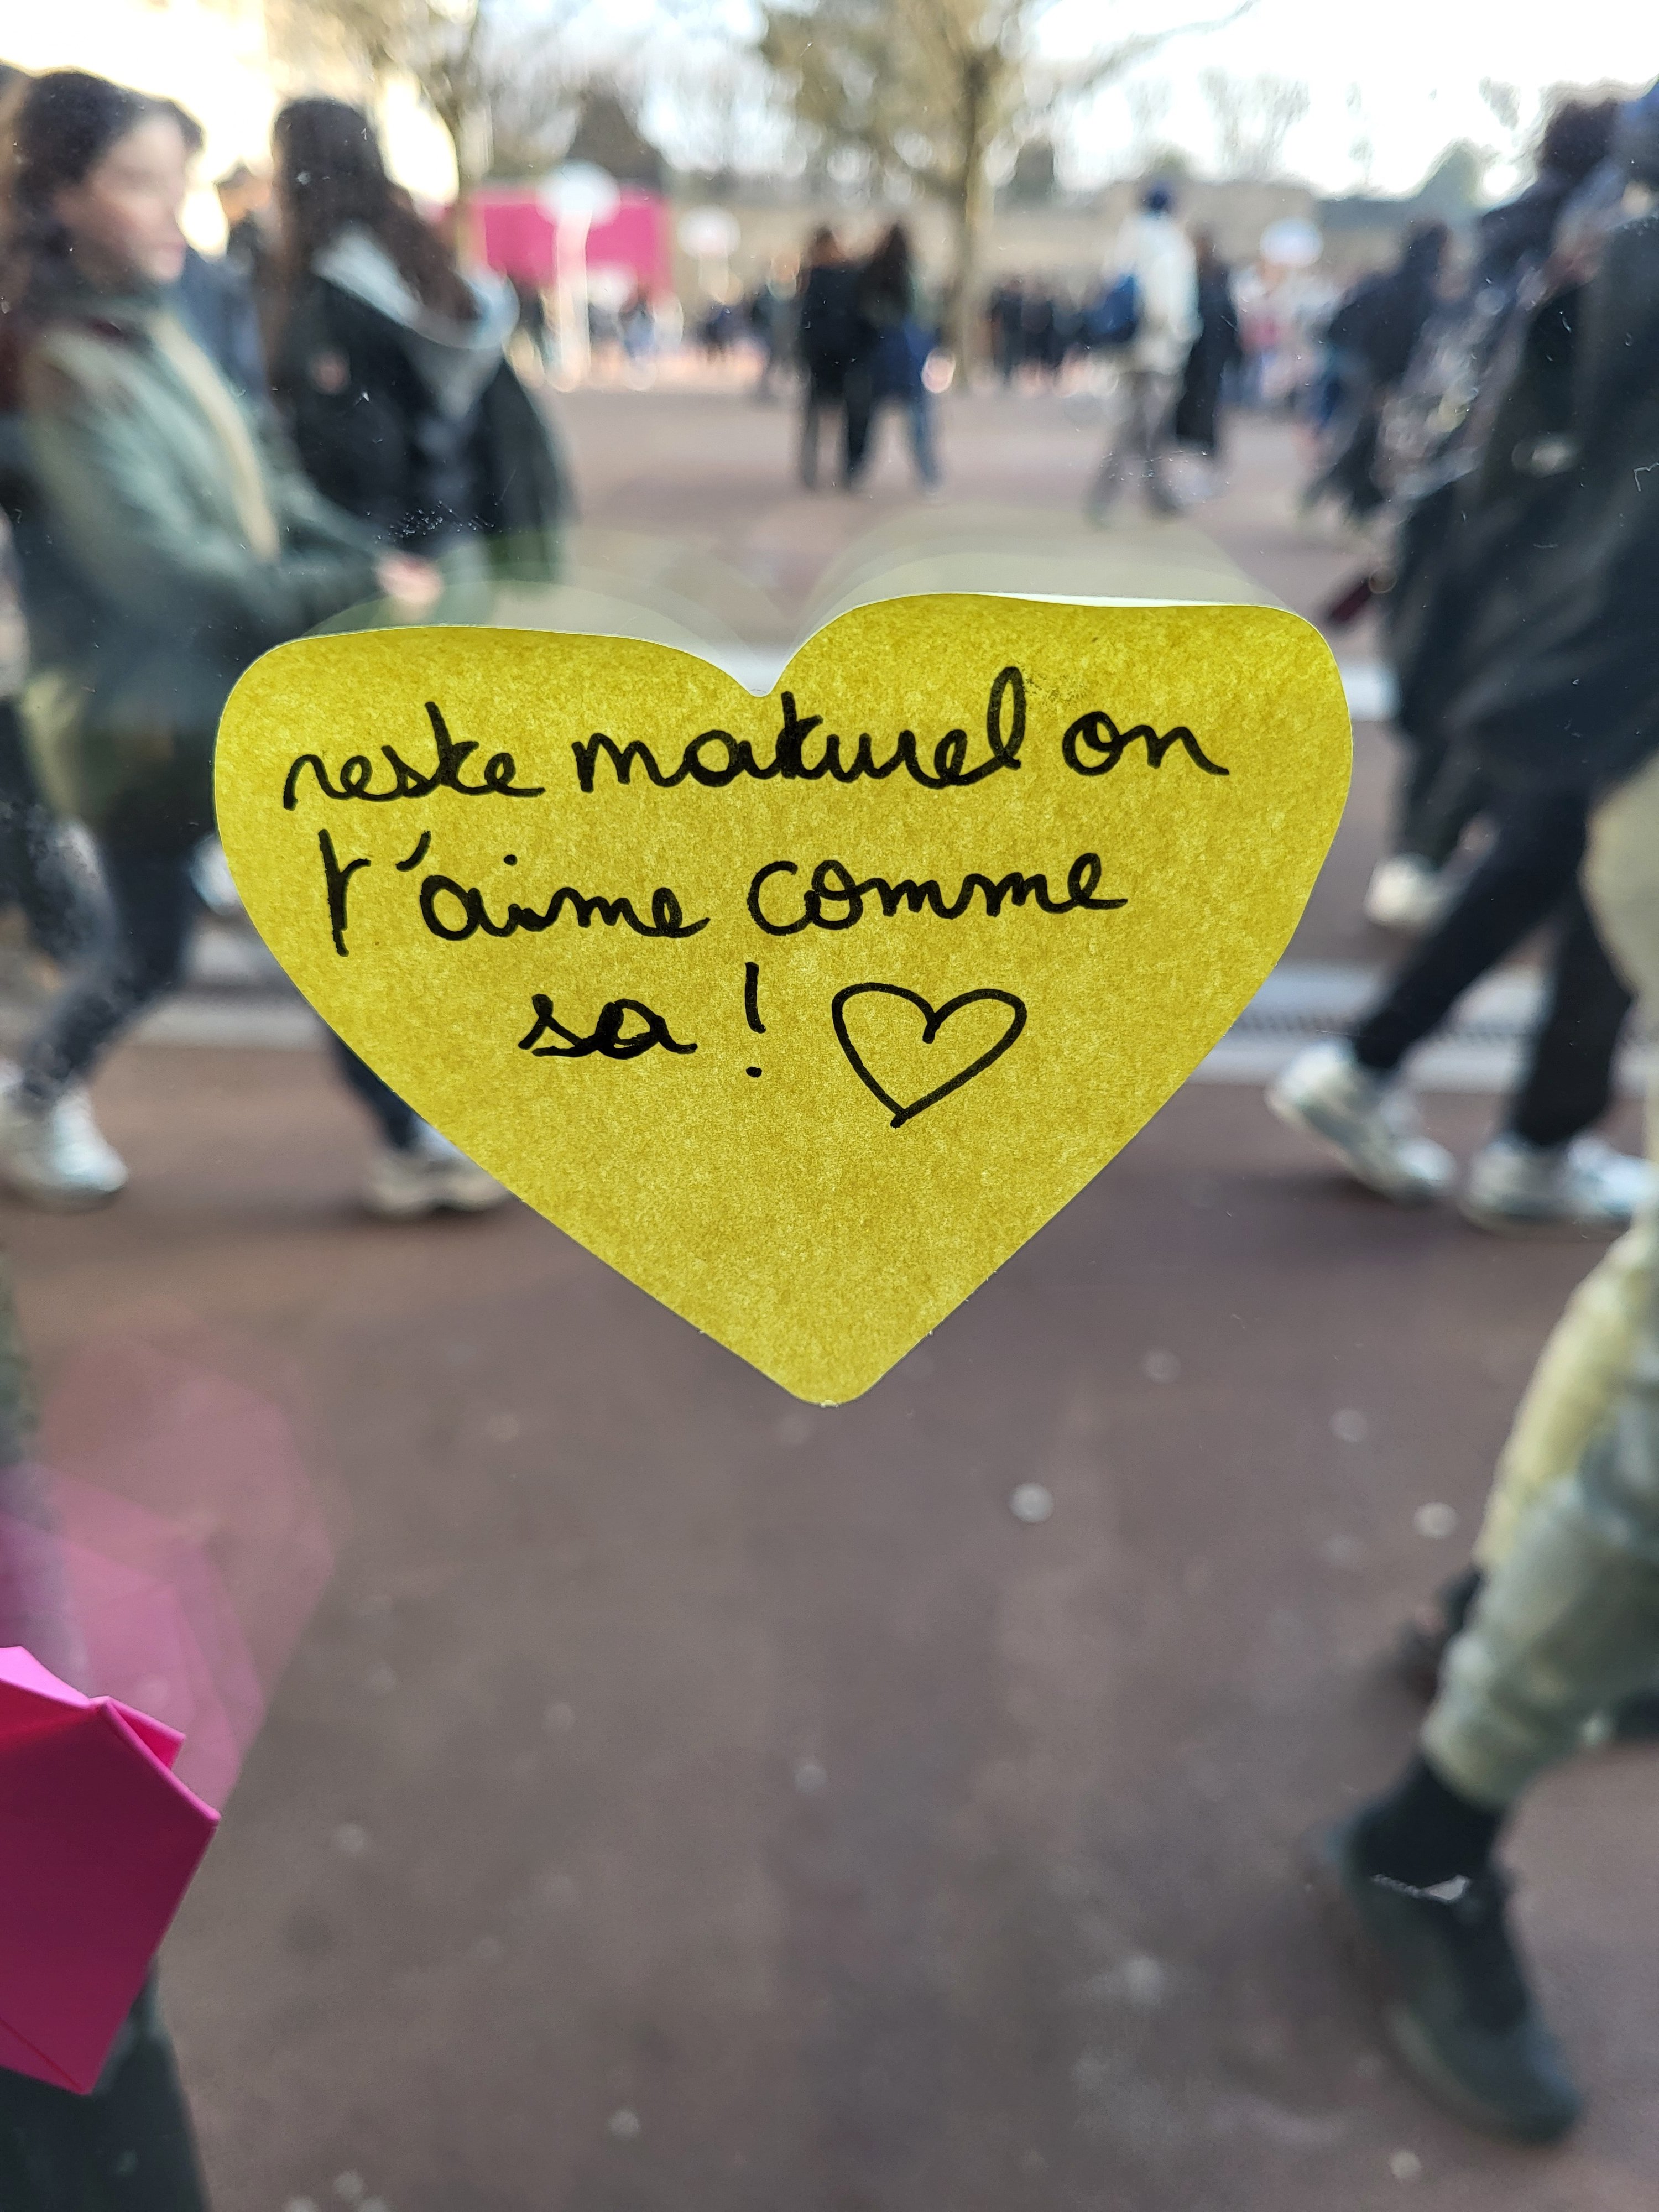 reste naturel on
t'aime comme
sa ! ♡